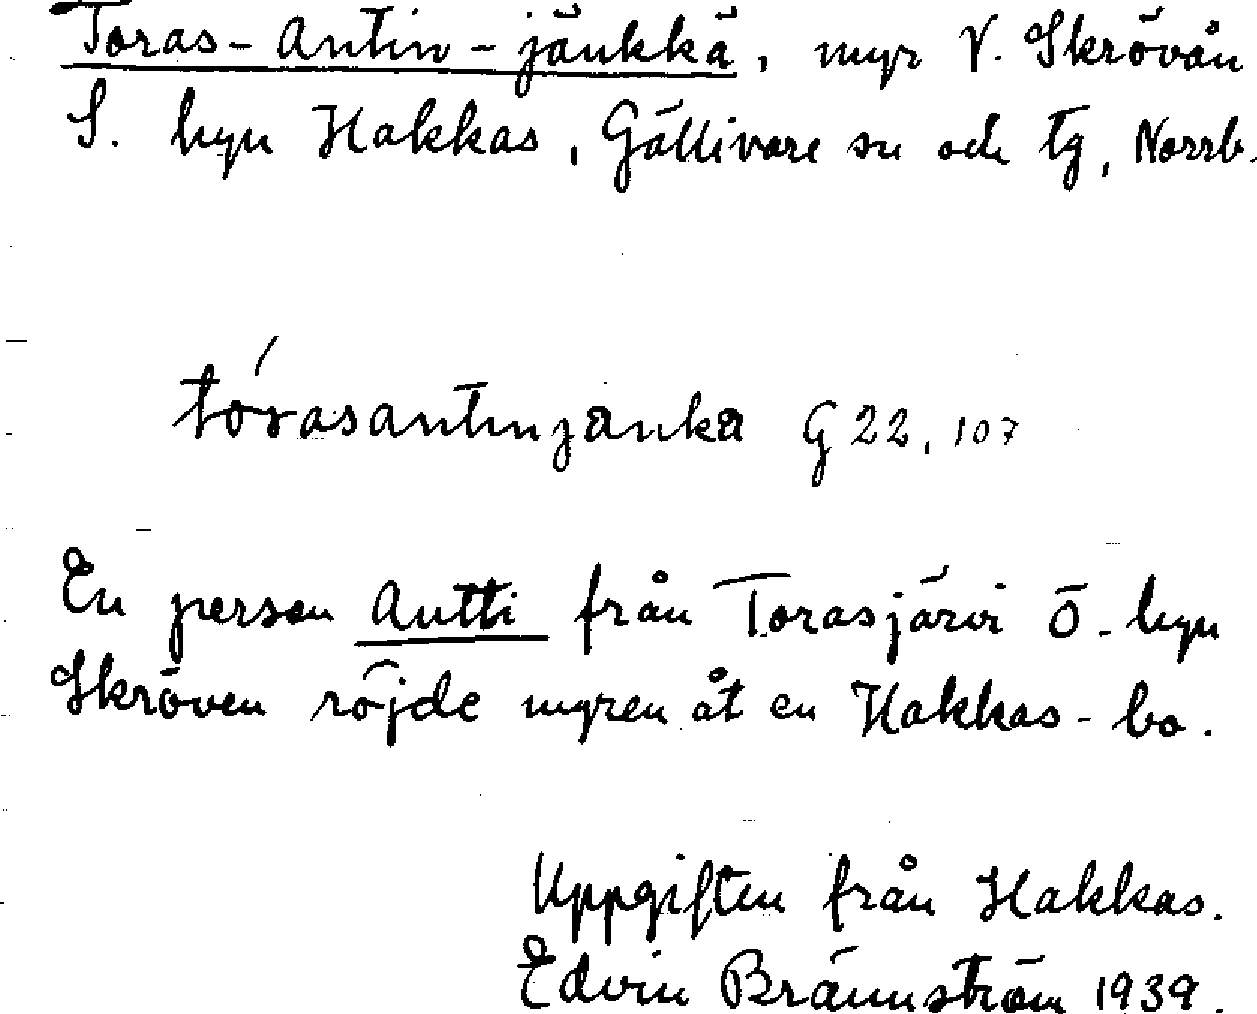 Toras-Antin-jänkkä, myr V. Skrövån
S. byn Hakkas, Gällivare sn och tg, Norrb.
tórasantinjanka G 22, 107
En person Antti från Torasjärvi Ö. byn
Skröven röjde myren åt en Hakkas-bo.
Uppgiften från Hakkas.
Edvin Brännström 1939.